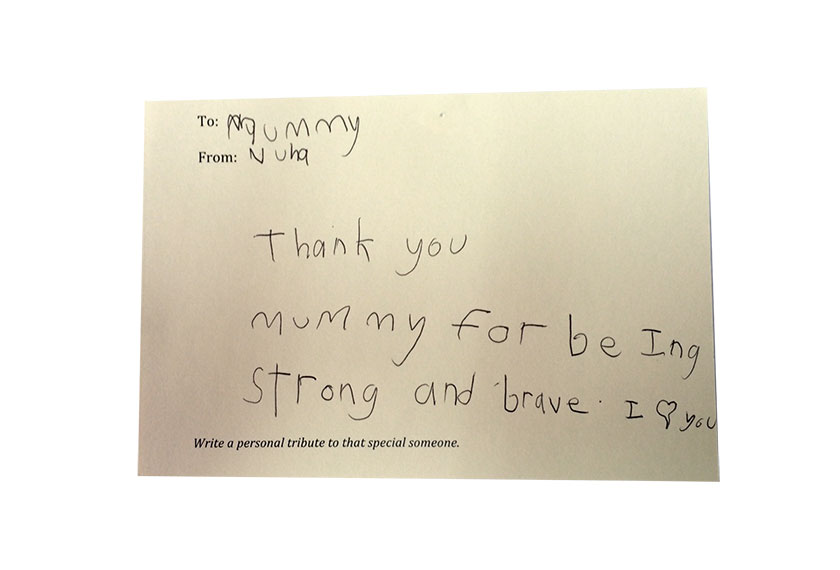 To: Mummy
From: Nuha
Thank you
Mummy for being
Strong and brave. I ♡ you
Write a personal tribute to that special someone.